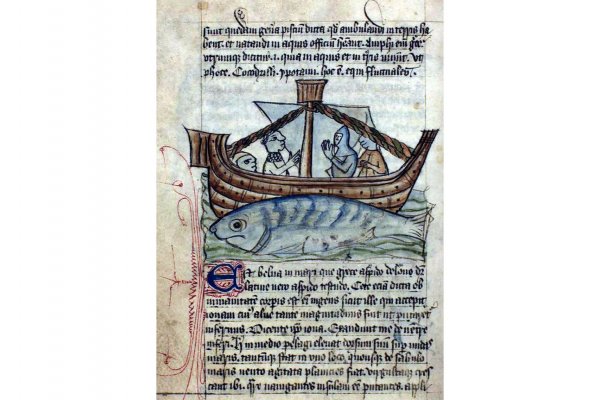 sunt quedam gena pisciū dicta qd ambulandi in terris ha
bent. et natandi in aquis officiū heant. Amphi em gre
utrumque dicitur .i. quia in aquis et in tris uiuūt. ut
phoce. Cocodrilli. ypotami. hoc ē equi fluctuales.
Est belua in mari que grece aspido delone dr
latine uero aspido testudo. Cete eciā dicta ob
inmanitatem corpis est eī ingens sicut ille qui accepit
ionam cuiꝰ aluꝰ tante magnitudinis fuit ut putaret
infernus. Dicente ipo iona. Exaudiuit me de uentre
inferi. in medio pelagi eleuat dorsum suum sup undas
maris. tantumque stat in uno loco. quousque de sabulo
maris uento agitata planicies fiat. uirgultaque cres
cant ibi. nauigantes insulam eē putantes. appli